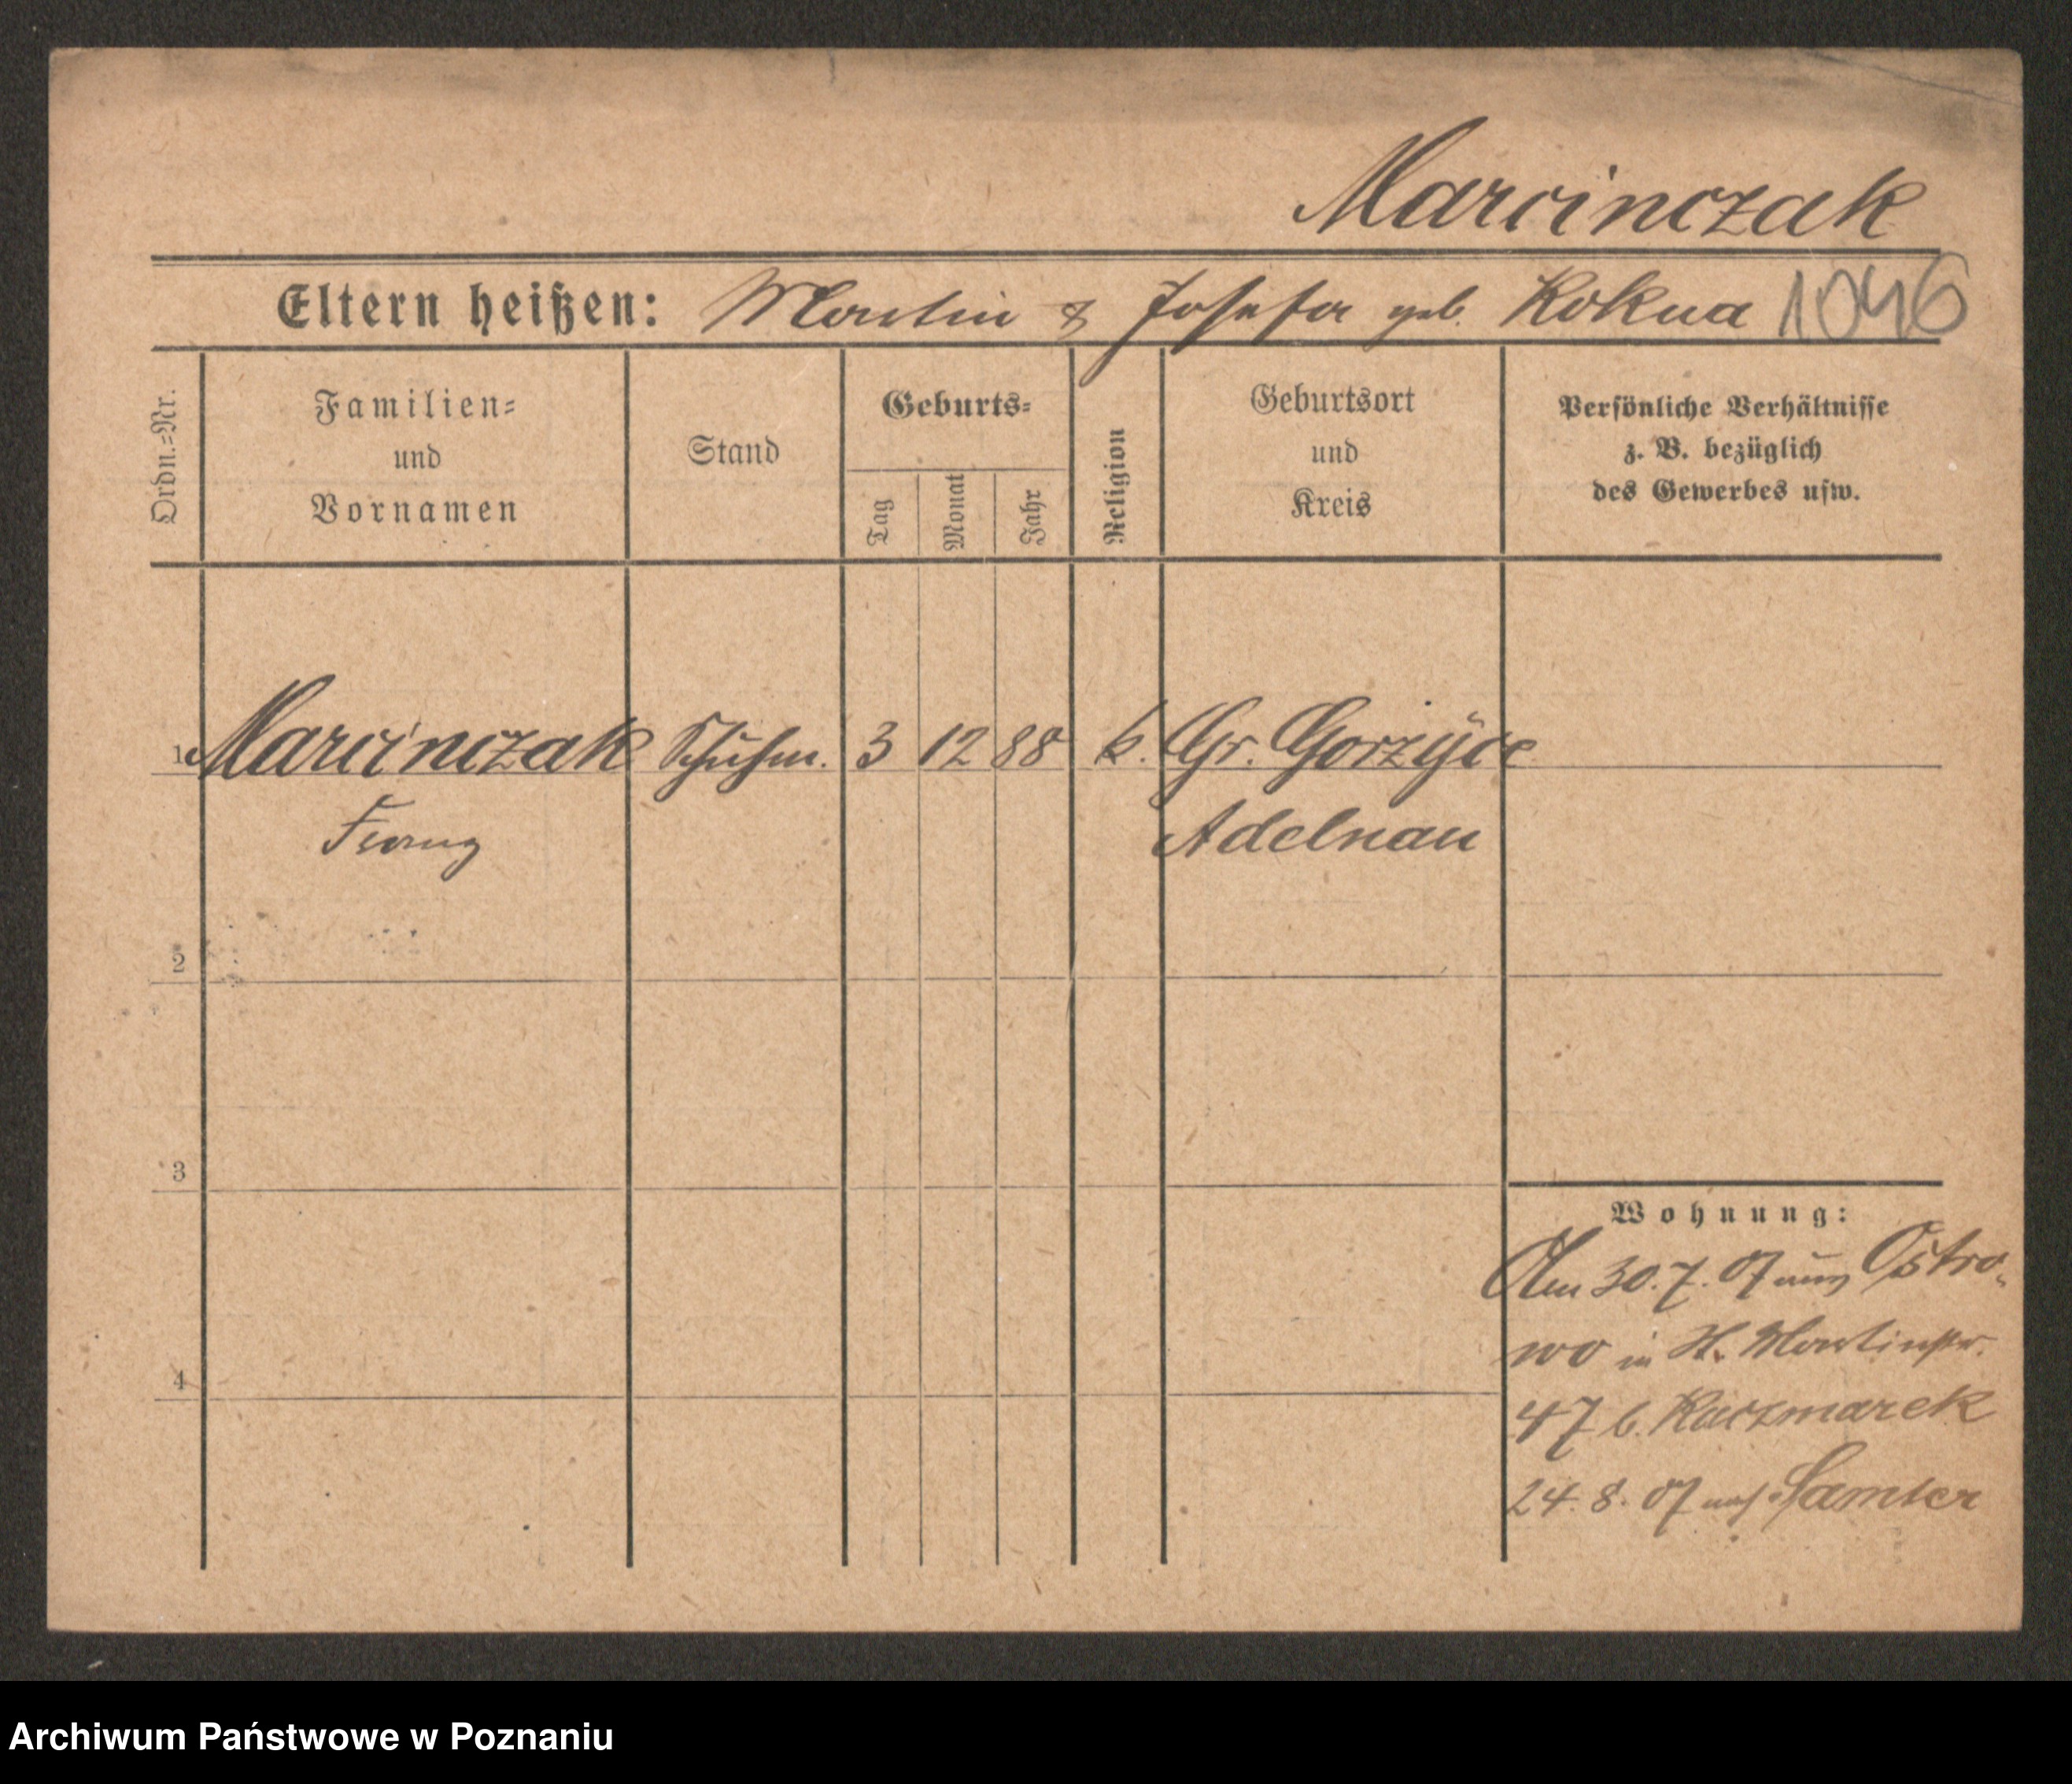 Marcinczak
Eltern heißen: Martin & Josefa geb. Kokua 1046
Ordn.=Nr.
Familien=
und
Vornamen
Stand
Geburts=
Tag
Monat
Jahr
Religion
Geburtsort
und
Kreis
Persönliche Verhältnisse
z. B. bezüglich
des Gewerbes usw.
1 Marcinczak Schuhm. 3 12 88 k. Gr. Gorzyce
Franz Adelnau
2
3
4
Wohnung:
30.7.07 aus Ostro-
wo in St. Martinstr.
47 b. Kaczmarek
24.8.07 nach Samter
Archiwum Państwowe w Poznaniu